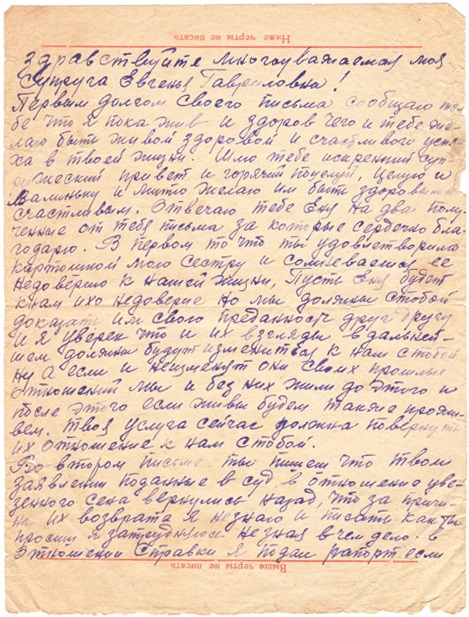 Ниже черты не писать
Здравствуйте многоуважаемая моя
Супруга Евгенья Гавриловна!
Первым долгом своего письма сообщаю те-
бе что я пока жив и здоров чего и тебе же-
лаю быть живой здоровой и счастливого успе-
ха в твоей жизни. Шлю тебе искренний суп-
ружеский привет и горячий поцелуй, целую и
и Митю желаю им быть здоровым и
счастливым. Отвечаю тебе Еня на два полу-
ченные от тебя письма за которые сердечно бла-
годарю. В первом то что ты удовнетворила
картошкой мою сестру и сомневаешся ее
недоверию к нашей жизни, Пусть Еня будет
к нам ихо недоверие но мы должны стобой
доказать им свою преданность друг другу
и я уверен что и их взгляды в дальней-
шем должны будут изменится к нам стобой
ну а если и неизменят они своих прошлых
отношений мы и без них жили до этого и
после этого если живы будем также прожи-
вем. Твоя услуга сейчас должна повернуть
их отношение к нам стобой.
Во втором письме ты пишеш что твои
заявления поданные в суд в отношении уве-
зенного сена вернулись назад, что за причи-
на их возврата я незнаю и писать как ты
просиш я затрудняюсь незная в чем дело. в
Отношении Справки я подал рапорт если
Выше черты не писать